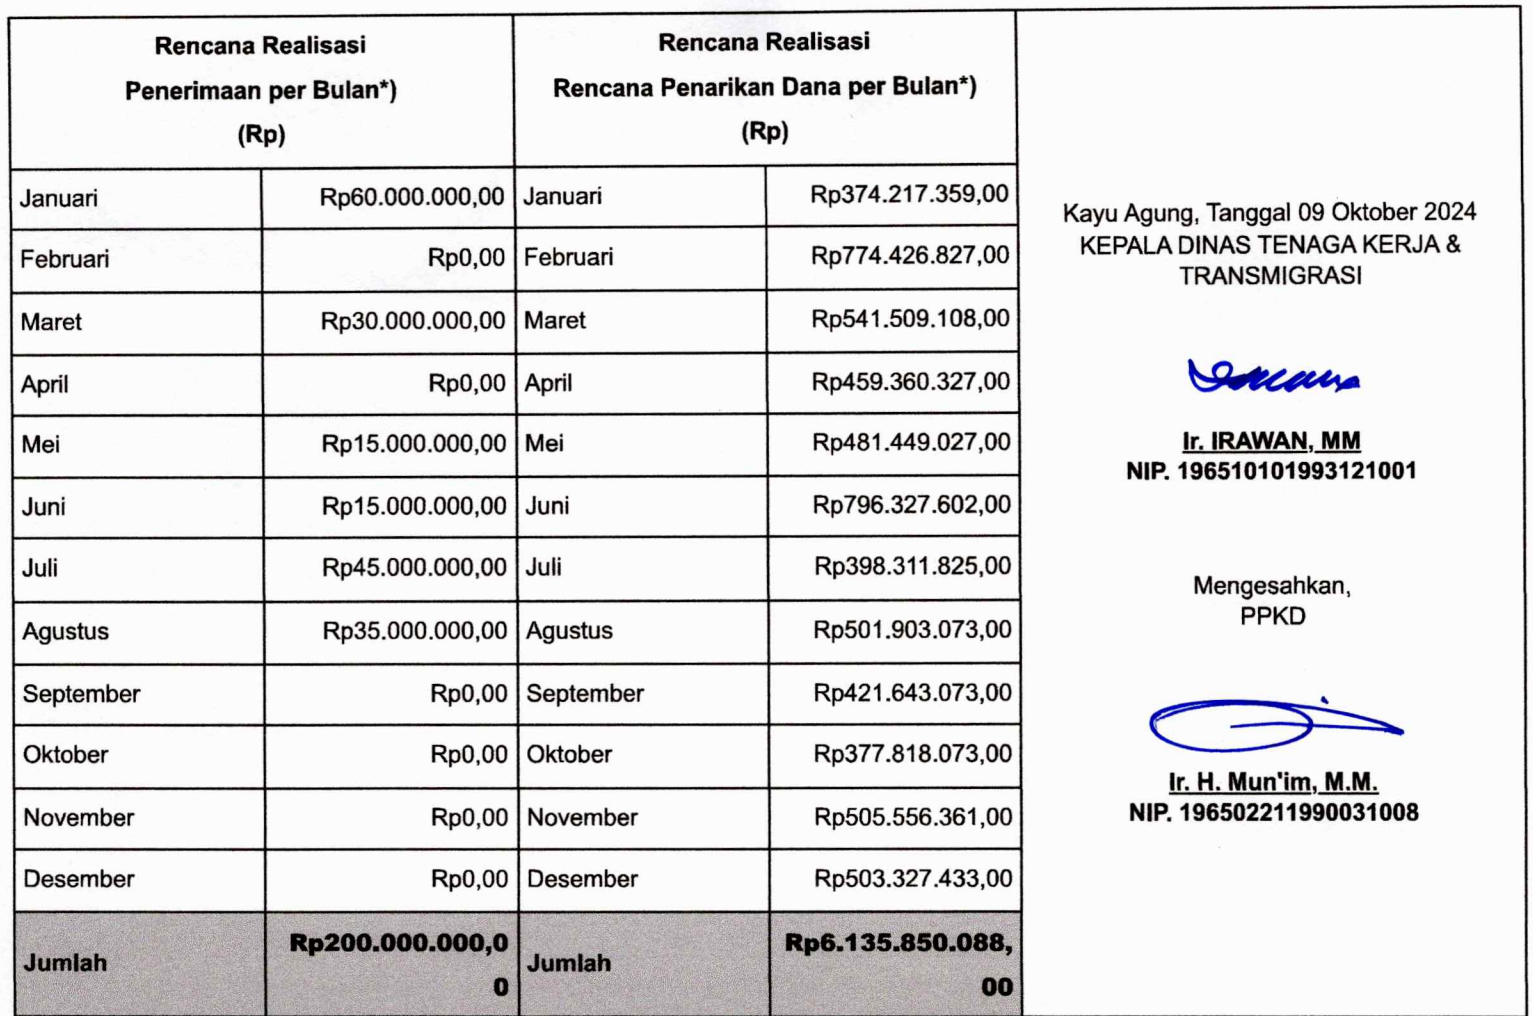 Rencana Realisasi
Penerimaan per Bulan*)
(Rp)
Rencana Realisasi
Rencana Penarikan Dana per Bulan*)
(Rp)
Januari Rp60.000.000,00 Januari Rp374.217.359,00
Februari Rp0,00 Februari Rp774.426.827,00
Maret Rp30.000.000,00 Maret Rp541.509.108,00
April Rp0,00 April Rp459.360.327,00
Mei Rp15.000.000,00 Mei Rp481.449.027,00
Juni Rp15.000.000,00 Juni Rp796.327.602,00
Juli Rp45.000.000,00 Juli Rp398.311.825,00
Agustus Rp35.000.000,00 Agustus Rp501.903.073,00
September Rp0,00 September Rp421.643.073,00
Oktober Rp0,00 Oktober Rp377.818.073,00
November Rp0,00 November Rp505.556.361,00
Desember Rp0,00 Desember Rp503.327.433,00
Jumlah Rp200.000.000,0
0
Jumlah Rp6.135.850.088,
00
Kayu Agung, Tanggal 09 Oktober 2024
KEPALA DINAS TENAGA KERJA &
TRANSMIGRASI
Ir. IRAWAN, MM
NIP. 196510101993121001
Mengesahkan,
PPKD
Ir. H. Mun'im, M.M.
NIP. 196502211990031008